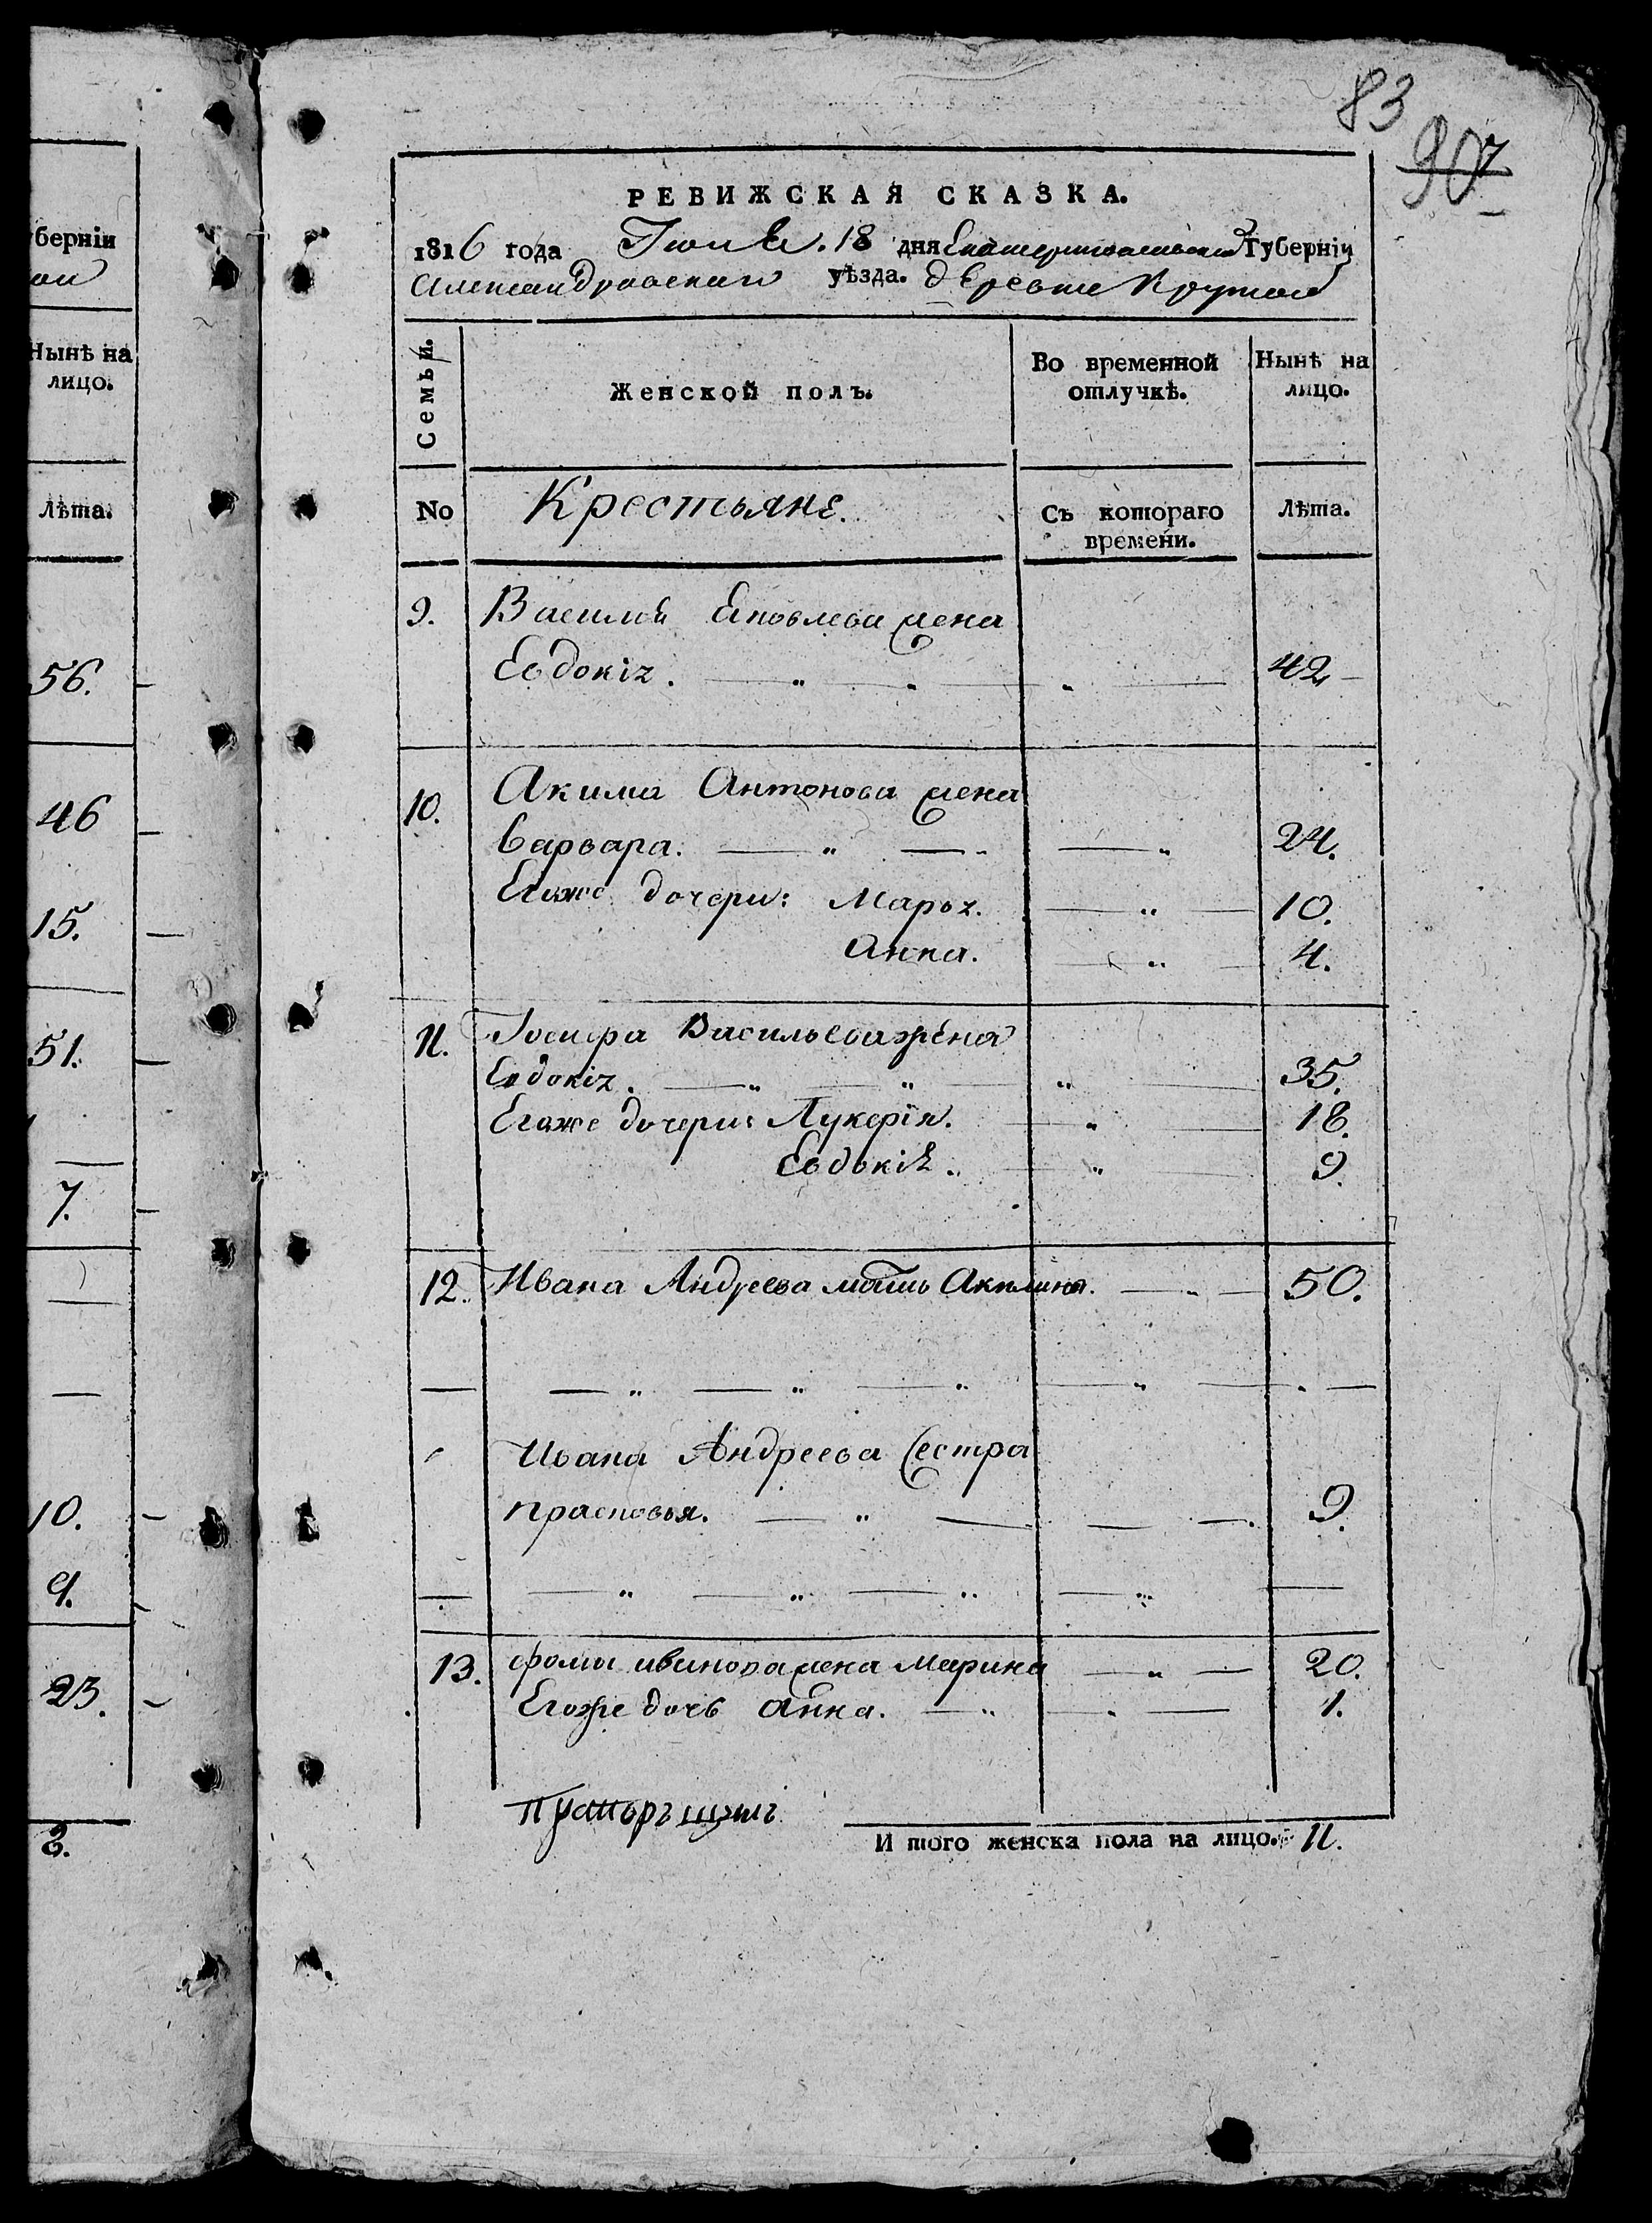 83
90
берніи
Нынѣ на
лицо.
Лѣта.
56.
46
15.
51.
7.
10.
9.
23.
РЕВИЖСКАЯ СКАЗКА.
1816 года Іюня. 18 дня Екатеринославской Губерніи
Александровскаго уѣзда. деревне Крутой
Семьи.
Женской полъ.
Во временной
отлучкѣ.
Нынѣ на
лицо.
No
Крестьяне.
Съ котораго
времени.
Лѣта.
9. Василія Яковлева жена
Евдокія. 42
10. Акима Антонова жена
Варвара. 24.
Егоже дочери: Марья. 10.
Анна. 4.
11. Іосифа Васильева жена
Евдокія. 35.
Егоже дочери: Лукерія. 18.
Евдокія. 9.
12. Ивана Андреева мать Акилина. 50.
Ивана Андреева сестра
Прасковья. 9.
13. Фомы жена Марина 20.
Егоже дочь Анна. 1.
И того женска пола на лицо. 11.